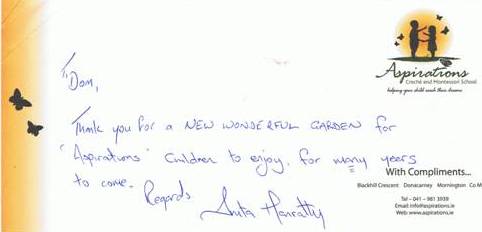 Aspirations
Creche and Montessori School
helping your child reach their dreams
Dom,
Thank you for a NEW WONDERFUL GARDEN for
"Aspirations" Children to enjoy, for many years
to come. Regards
Anita Hanratty
With Compliments...
Blackhill Crescent Donacarney Mornington Co M
Tel - 041 - 981 3939
Email: info@aspirations.ie
Web: www.aspirations.ie